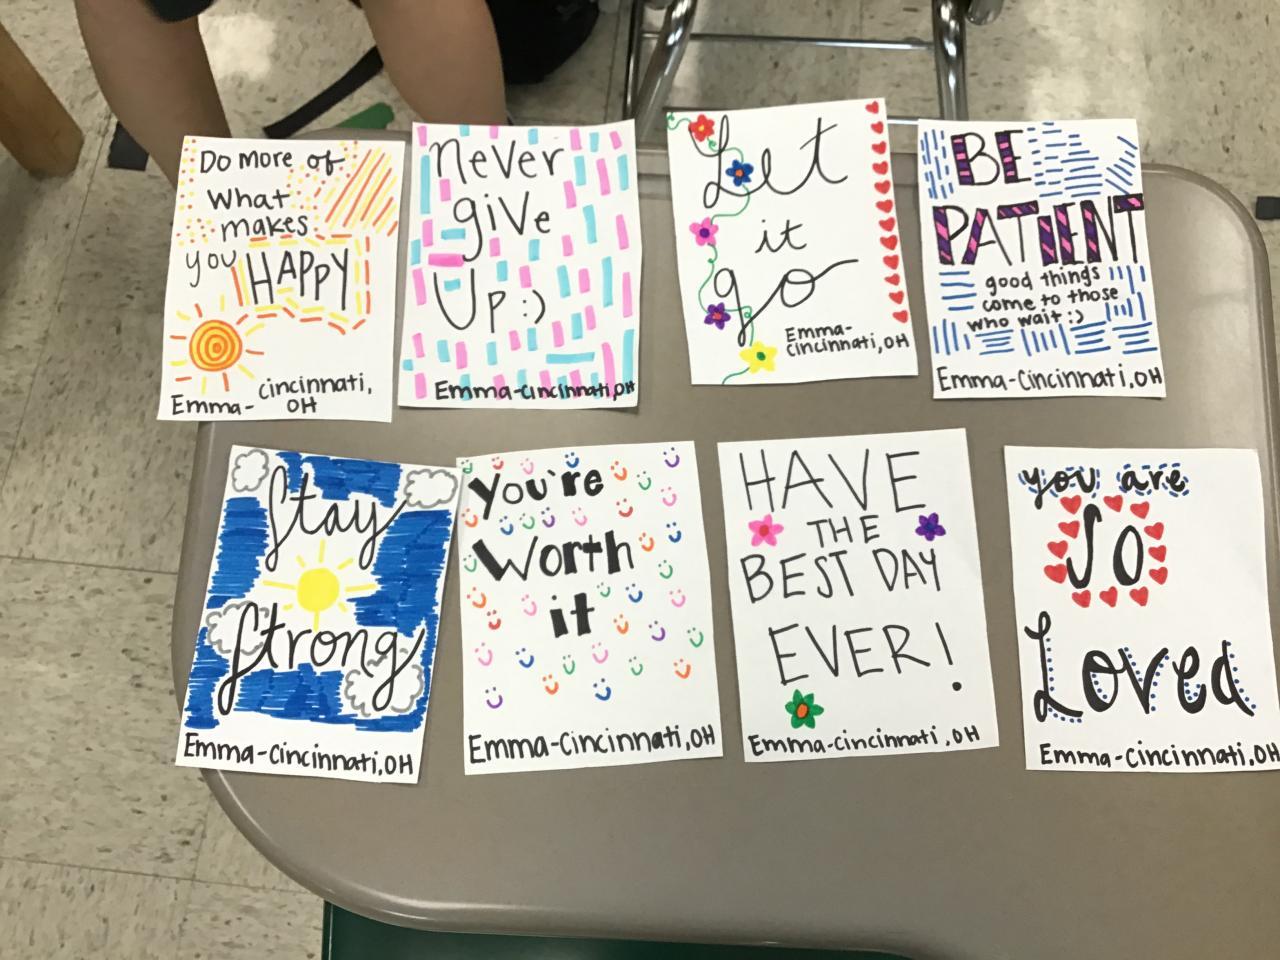 Do more of
What
makes
you HAPPY
Emma- cincinnati,
OH
never
give
Up :)
Emma-Cincinnati,OH
Let
it
go
Emma-
cincinnati, OH
BE
PATIENT
good things
come to those
who wait :)
Emma-Cincinnati, OH
Stay
Strong
Emma-Cincinnati, OH
You're
Worth
it
Emma-Cincinnati, OH
HAVE
THE
BEST DAY
EVER!
Emma-cincinnati, OH
you are
SO
Loved
Emma-Cincinnati, OH